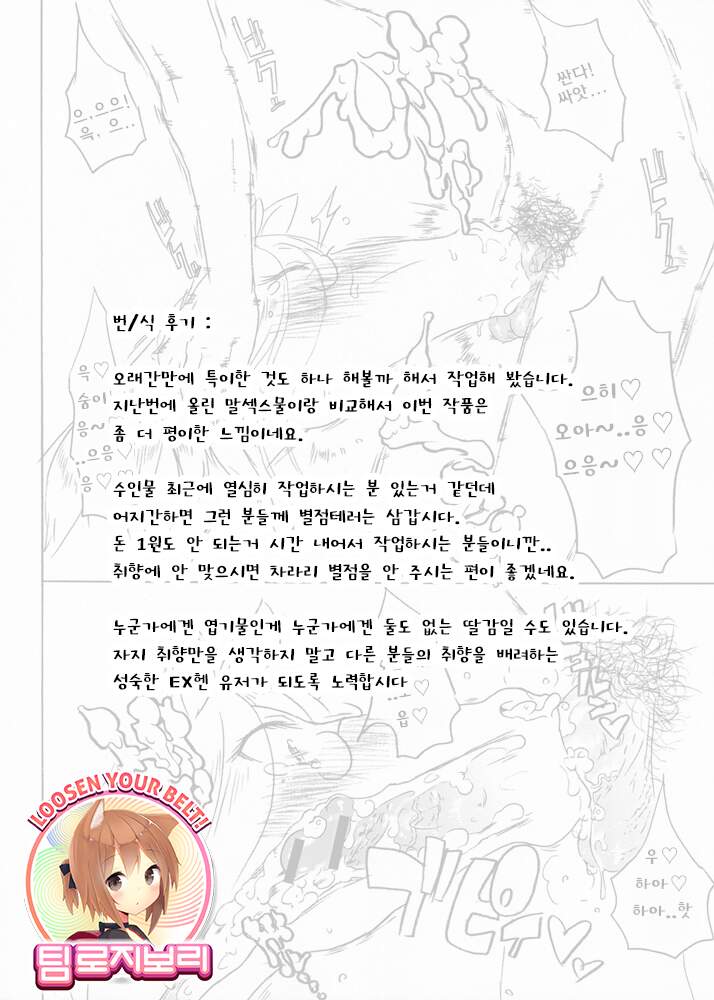 싼다!
싸앗...
으,으으!
흑, 으..
번/식 후기 :
오래간만에 특이한 것도 하나 해볼까 해서 작업해 봤습니다.
지난번에 올린 말섹스물이랑 비교해서 이번 작품은
좀 더 평이한 느낌이네요.
윽♡
숨이♡
응~
..으응♡
응♡
으히♡
오아~..응♡
으응~♡♡
수인물 최근에 열심히 작업하시는 분 있는거 같던데
어지간하면 그런 분들께 별점테러는 삼갑시다.
돈 1원도 안 되는거 시간 내어서 작업하시는 분들이니깐..
취향에 안 맞으시면 차라리 별점을 안 주시는 편이 좋겠네요.
누군가에겐 엽기물인게 누군가에겐 둘도 없는 딸감일 수도 있습니다.
자지 취향만을 생각하지 말고 다른 분들의 취향을 배려하는
성숙한 EX헨 유저가 되도록 노력합시다
읍♡
우♡
하아♡
하아..핫
LOOSEN YOUR BELT!
팀 로지보리